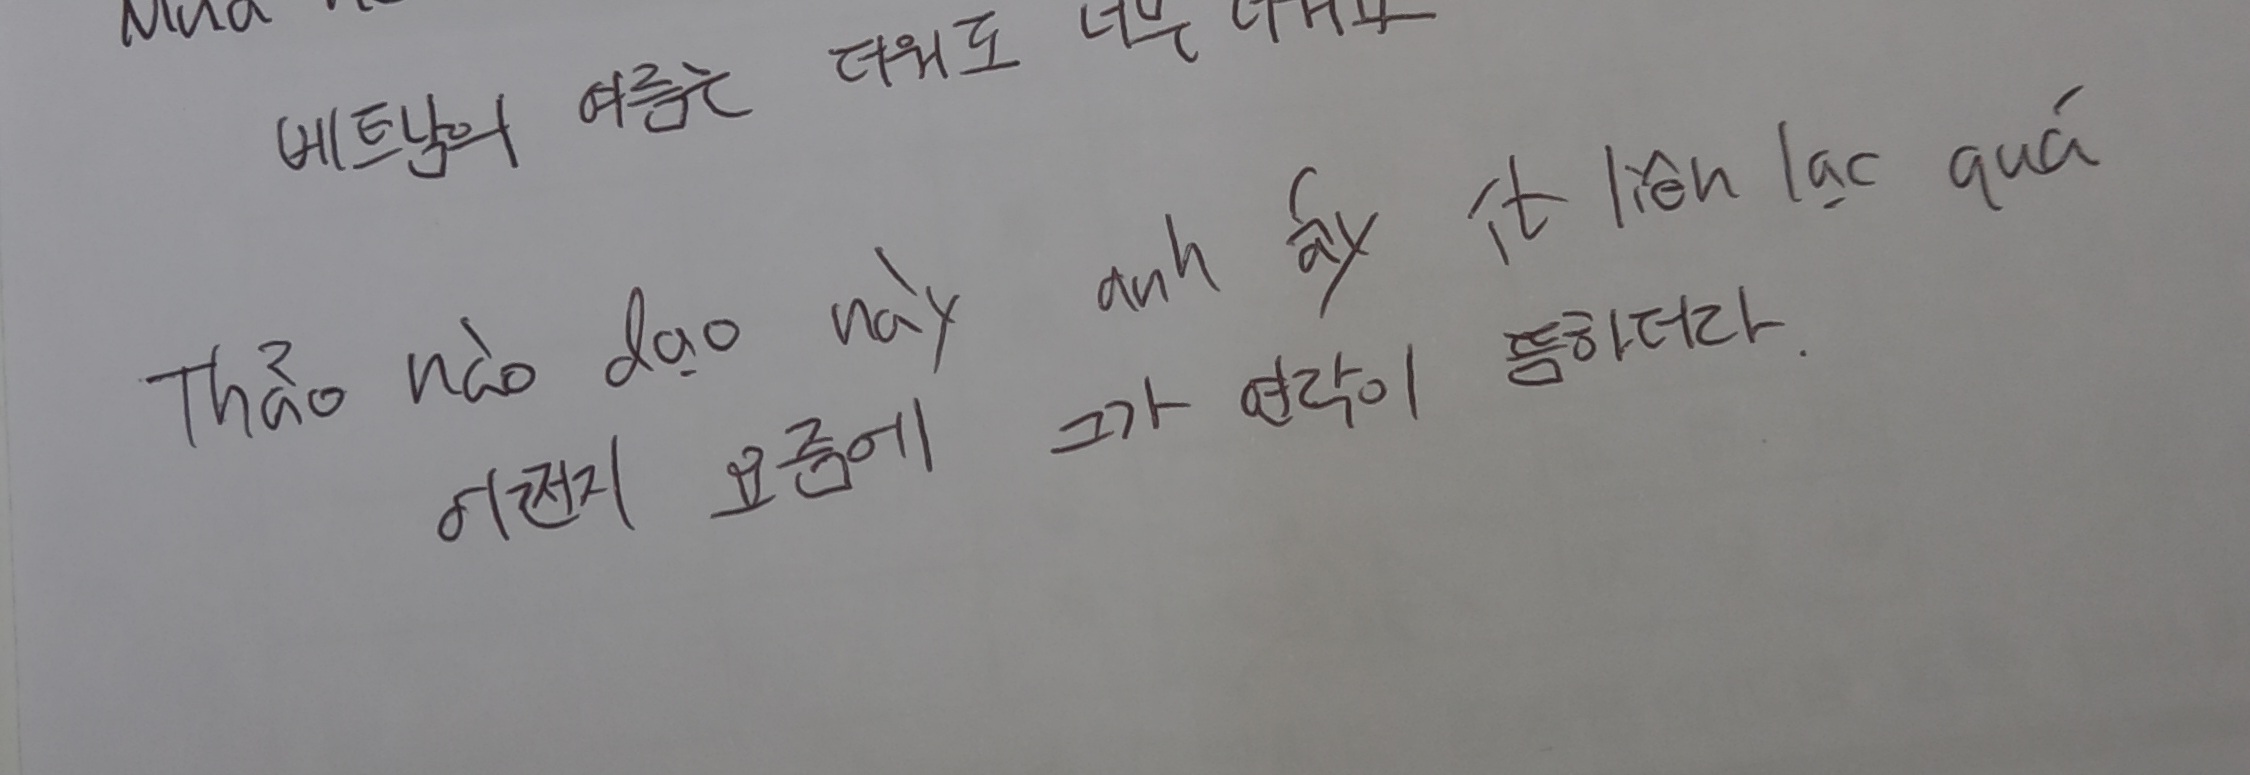 베트남의 여름는 더워도 너무
Thảo nào dạo này anh ấy ít liên lạc quá
어쩐지 요즘에 그가 연락이 뜸하더라.